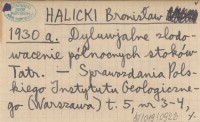 HALICKI Bronisław
1930 a. Dyluwjalne zlodo-
wacenie północnych stoków
Tatr. — Sprawozdania Pols-
kiego Instytutu Geologiczne-
go (Warszawa) t. 5, nr 3-4,